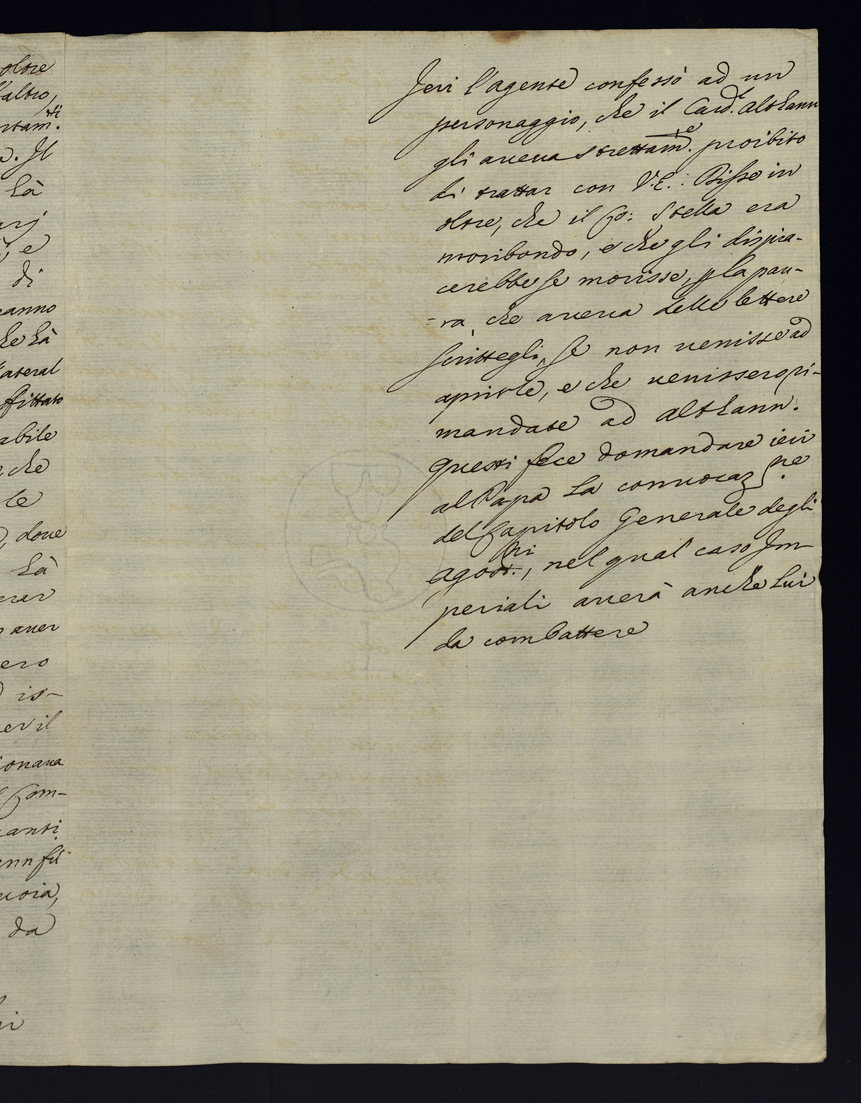 oltre
l'altro,
ntam.ti
a. Il
Là
arj
, e
di
hanno
he hà
lateral
fittato
abile
che
le
, doue
hà
erer
auer
ero
is-
er il
ionaua
Com-
anti
ann fù
uoia,
da
Jeri l'agente confessò ad un
personaggio, che il Card.l Althann
gli aueua strettam.e proibito
di trattar con V.E.: Disse in
oltre, che il Co: Stella era
moribondo, e che gli dispia-
cerebbe se morisse, p la pau-
ra, che aueua delle lettere
scrittegli, se non uenisse ad
aprirle, e che uenissero ri-
mandate ad Althann.
Questi fece domandare ieri
al Papa la conuocaz.ne
del Capitolo Generale degli
agost.ni, nel qual caso Im-
periali auerà anche lui
da combattere